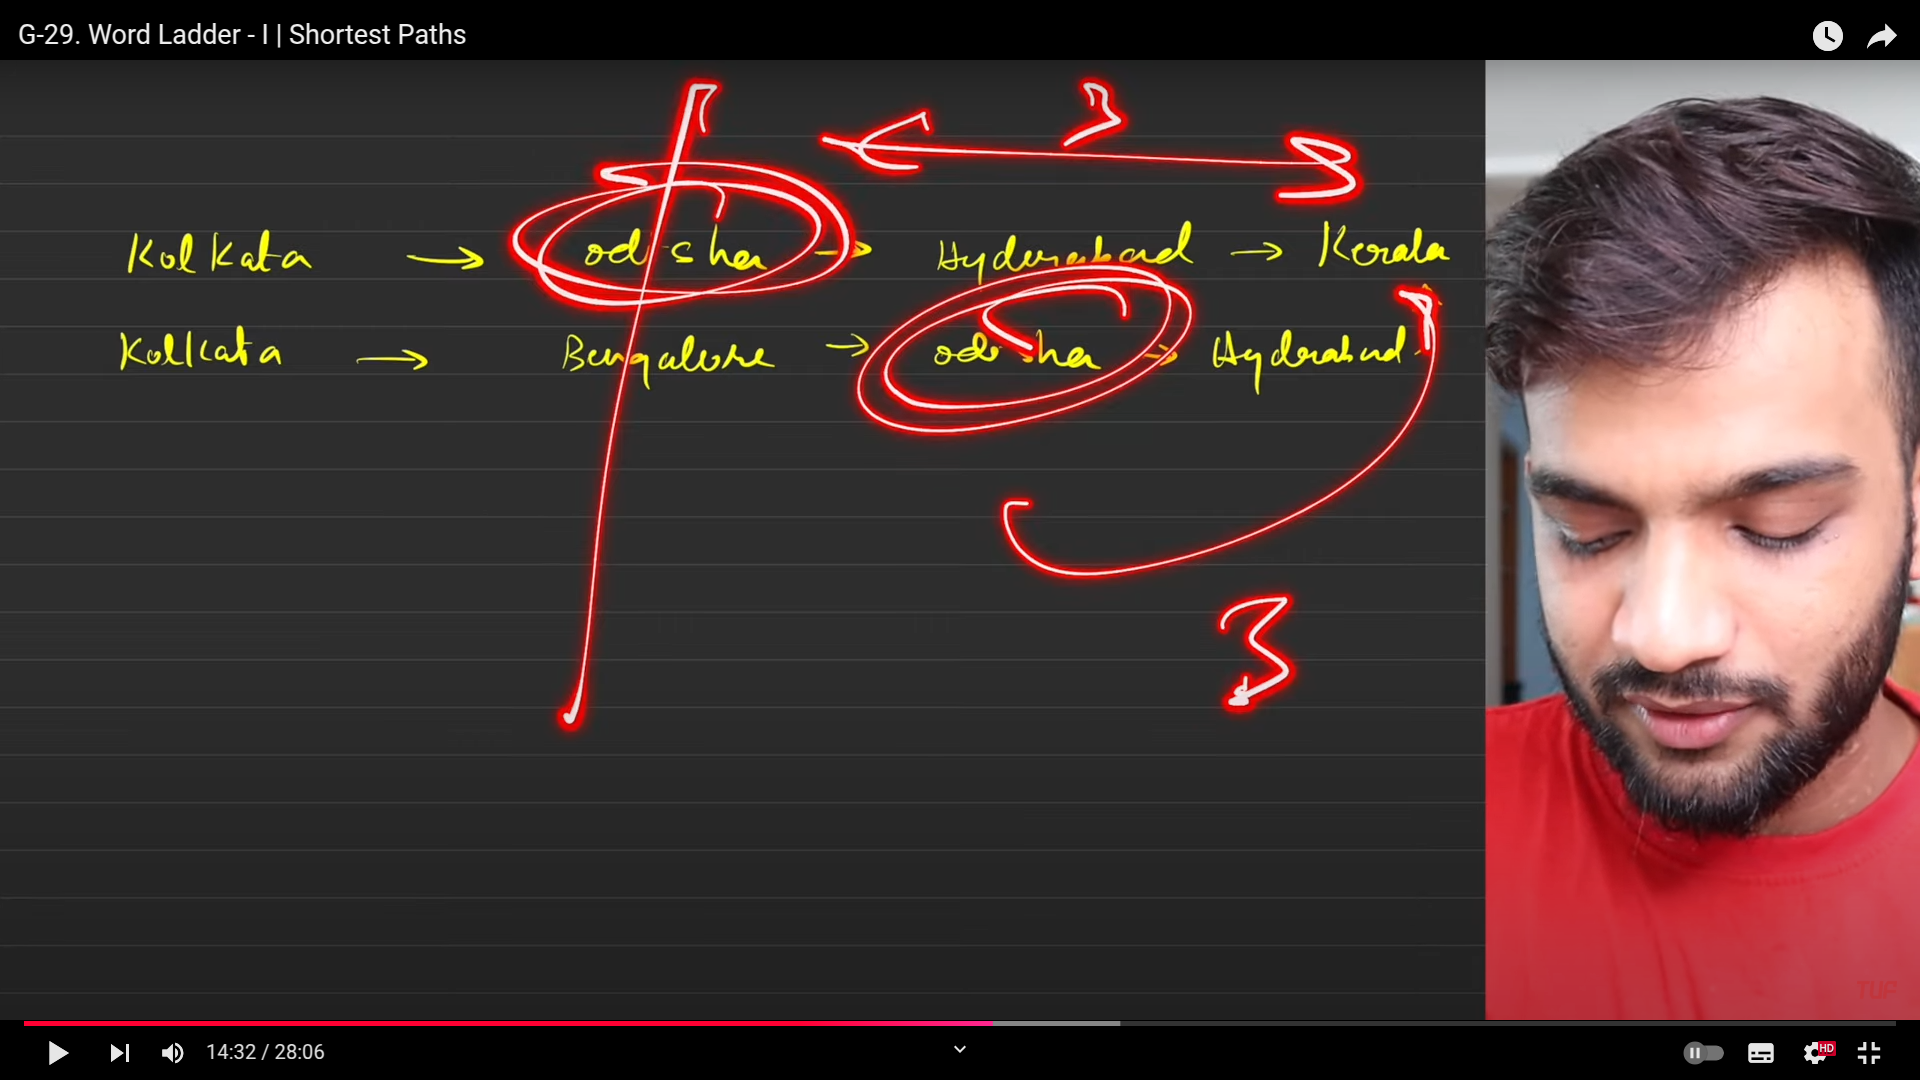 G-29. Word Ladder - I | Shortest Paths
3
Kolkata → odisha → Hyderabad → Kerala
Kolkata → Bengalore → odisha → Hyderabad
3
TUF
14:32 / 28:06
HD